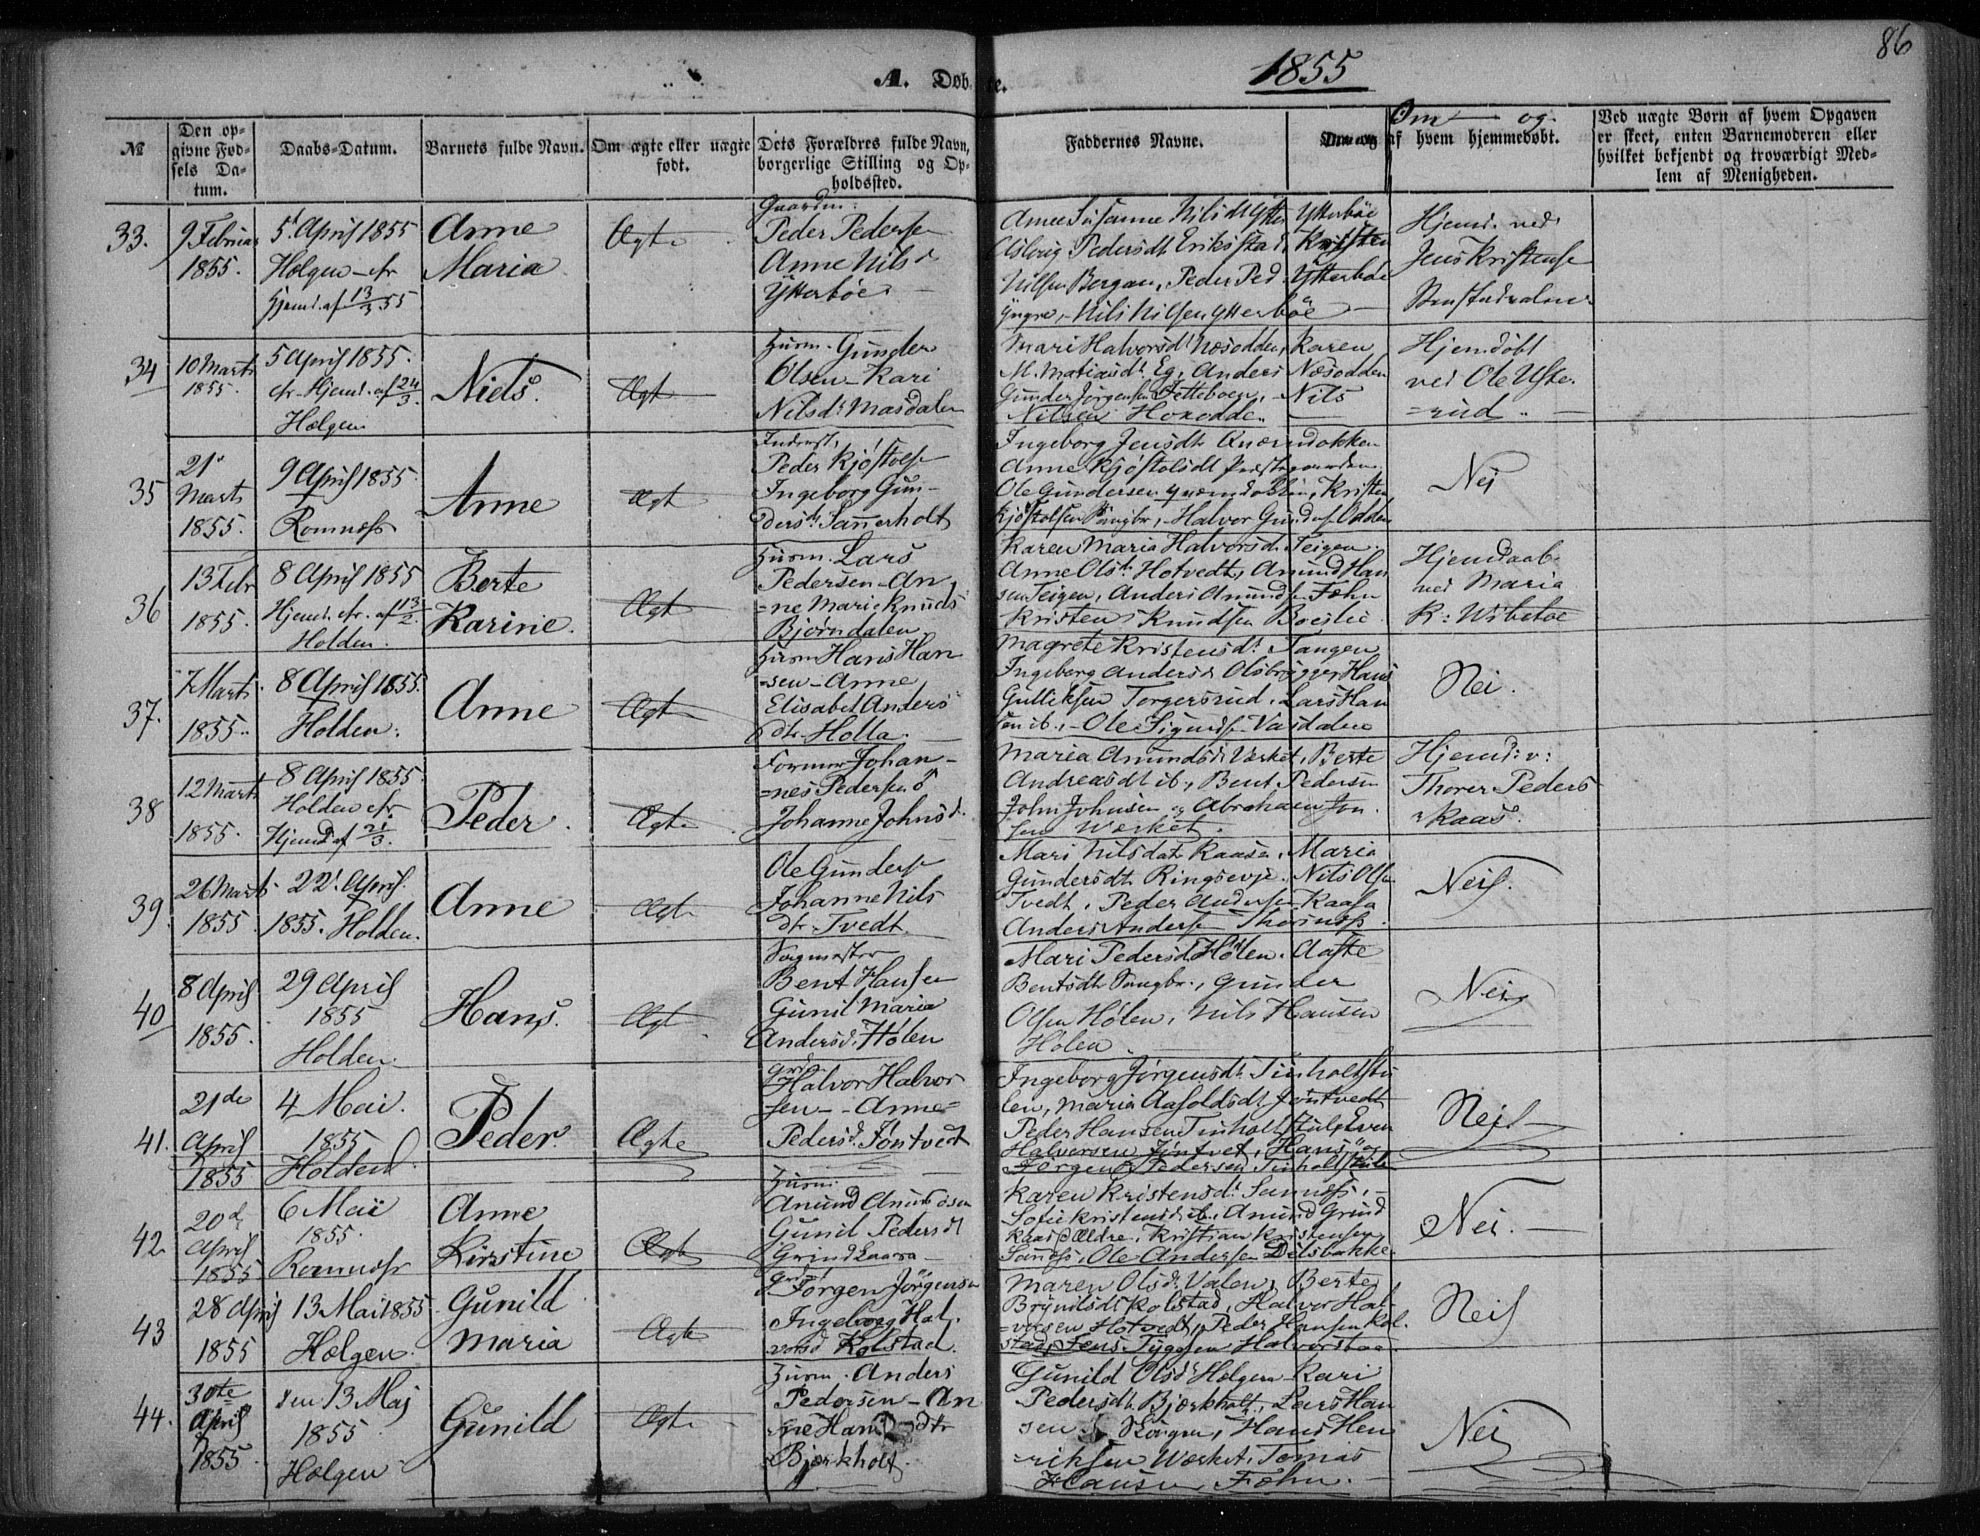 86
A. Døbte.
1855
№
Den opgivne Fødsels Datum.
Daabs-Datum.
Barnets fulde Navn.
Om ægte eller uægte født.
Dets Forældres fulde Navn, borgerlige Stilling og Opholdssted.
Faddernes Navne.
Om og af hvem hjemmedøbt.
Ved uægte Børn af hvem Opgaven er skeet, enten Barnemoderen eller hvilket bekjendt og troværdigt Medlem af Menigheden.
33.
9 Februar
1855.
5 April 1855
Hælgen
Hjemd. af 13/3 55
Anne
Maria
Ægte
Gaardm:
Peder Peders
Anne Nilsd
Ytterbøe
Anne Susanne Nilsdt Ytterbøe
Pedersdt Erikstad, Kristen
Nilsen Bergan, Peder Ped. Ytterbøe
Yngre, Nils Nilsen Ytterbøe
Hjemd. ved
Jens Kristense
34
10 Marts
1855.
5 April 1855.
Hjemd. af 24/3.
Hælgen
Niels.
Ægte
Husm. Gunder
Olsen - Kari
Nilsdt Masdalen
Mari Halvorsdt Næsodden, Karen
Eg, Anders Næsodden
Gunder Jørgensen, Nils
Nilsen
Hjemdøbt
ved Ole Ufse-
rud.
35
21
Marts
1855.
9 April 1855
Romnæss
Anne
Ægte
Inderst,
Peder Kjøstols
Ingeborg Gun-
dersdt Sannerholt
Ingeborg Jensdt
Anne Kjøstolsdt
Ole Gundersen, Kristen
Kjøstolsen, Halvor Odden
Nei
36
13 Febr
1855.
8 April 1855
Hjemd. af 13/2.
Holden.
Berte
Karine.
Ægte
Husm. Lars
Pedersen - An
=ne Marie Knuds
Bjørndalen
Karen Maria Halvorsd. Teigen.
Anne Olsdt Hotvedt, Amund Han
sen Teigen, Anders Amunds Fæhn
Kristen Knudsen
Hjemdaab
ved Maria
K: Wibetoe
37.
7 Marts
1855.
8 April 1855.
Holden.
Anne
Ægte
Husm Hans Han
=sen - Anne
Elisabet Anders
dtr. Holla.
Magrete Kristensdt Tangen
Ingeborg Andersd Olsbrygge, Hans
Gulliksen Torgersrud, Lars Han
sen ib., - Ole Sigurds
Nei.
38
12 Marts
1855.
8 April 1855.
Holden
Hjemd. af 21/3.
Peder.
Ægte
Former Johan-
=nes Peders
Johanne Johnsd.
Maria Amundsd Værket, Berte
Andreasdt ib., Bent Pedersen
John Johnsen og Abraham Jon
sen Værket.
Hjemd: v:
Thorer Peders
Kaas.
39
26 Marts
1855
22 April
1855. Holden.
Anne
Ægte
Ole Gunders
Johanne Nils
dtr. Tvedt.
Mari Nilsdat Kaasen, Maria
Gundersdt Ringsevje. Nils Ols
Tvedt, Peder Anders Kaasa
Anders Anders
Nei.
40
8 April
1855.
29 April
1855
Holden.
Hans.
Ægte
Sagmester
Bent Hansen
Gunil Maria
Andersd. Hølen
Mari Pedersd Hølen. Aaste
Bentsdt, Gunder
Olsen Hølen, Nils Hansen
Hølen
Nei
41.
21de
April
1855
4 Mai.
1855
Holden
Peder.
Ægte
Halvor Halvor
sen - Anne
Pedersd. Jøntvedt
Ingeborg Jørgensdt
len, Maria Aasoldsdt Jøntvedt
Peder Hansen, Even
Halvorsen Jøntvet, Hans og
Jørgen Pedersen
Nei
42
20d
April
1855
6 Maii
1855.
Romnæss
Anne
Kirstine
Ægte
Husm.
Amund Amundsen
Gunil Pedersdt
Grindkaasa
Karen Kristensd. Sannæss,
Sofie Kristensd ib., Amund Grind
kaas Ældre, Kristian Kristensen
Sannæss, Ole Andersen Delsbakke
Nei.
43
28 April
1855
13 Mai 1855.
Hælgen.
Gunild
Maria
Ægte
Jørgen Jørgensen
Ingeborg Hal.
vorsd Kolstad
Maren Olsd. Valen, Berte
Bryndlsdt Kolstad, Halvor Hal-
=vorsen Hotvedt, Peder Hansen Kol.
stad, Jens
Nei
44.
30te
April
1855
den 13 Maj
1855
Hælgen
Gunild
Ægte
Husm. Anders
Pedersen - An
=ne Hansdtr
Bjørkholt.
Gunild Olsd. Hælgen - Kari
Pedersdt. Bjørkholt, Lars Han
sen, Hans Hen
=riksen Værket, Tomas
Hansen Fæhn.
Nei